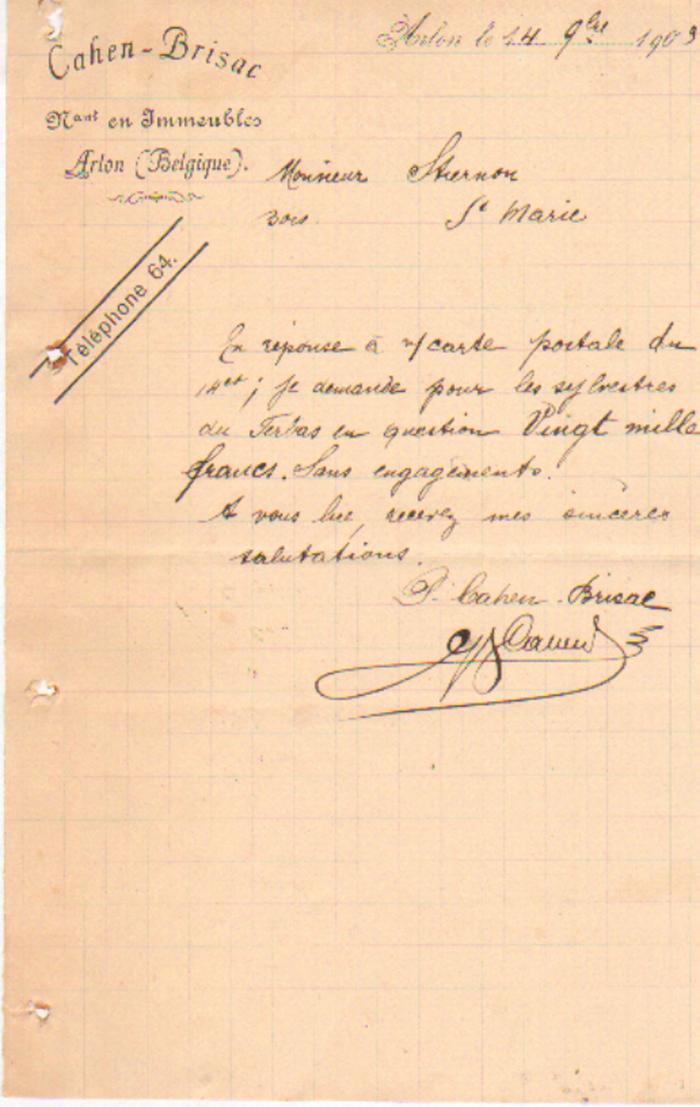 Cahen-Brisac
Nant en Immeubles
Arlon (Belgique).
Téléphone 64.
Arlon le 14 9bre 1903
Monsieur Stiernon
Bois St Marie
En réponse à v/carte postale du
14ct; je demande pour les sylvestres
du en question Vingt mille
francs. Sans engagements.
A vous lire, recevez mes sincères
salutations.
P. Cahen-Brisac